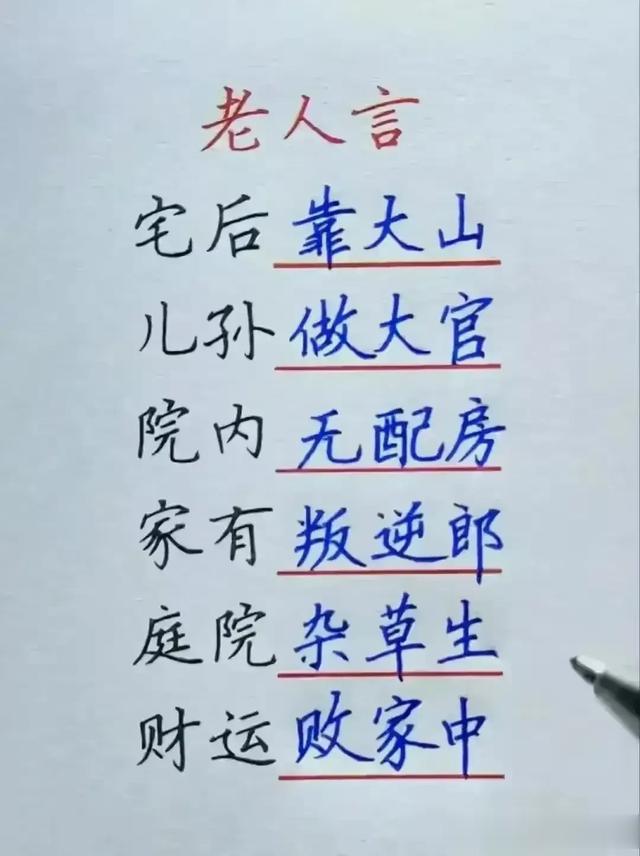 老人言
宅后靠大山
儿孙做大官
院内无配房
家有叛逆郎
庭院杂草生
财运败家中